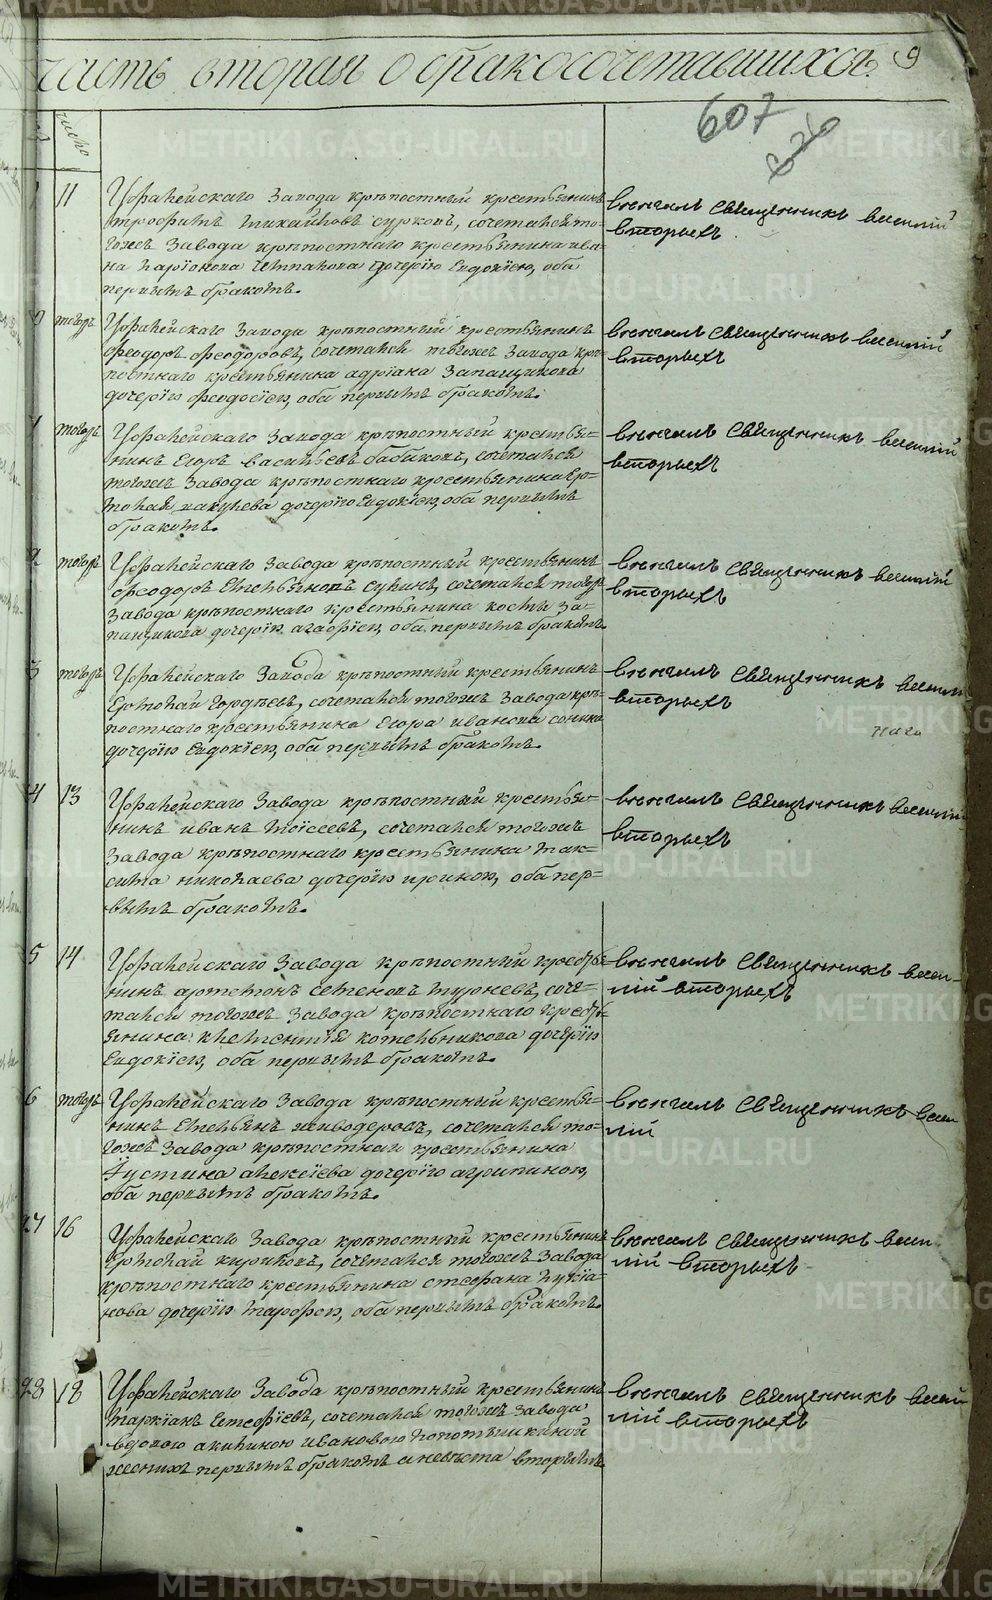 часть вторая о бракосочетавшихся.
9
607
число
11
Уфалейскаго Завода крѣпостный крестьянинъ
Трофимъ Михайловъ Сурковъ, сочетался то-
гожъ Завода крѣпостнаго крестьянина Ива-
на Ларіонова дочерію Евдокіею, оба
первымъ бракомъ.
венчалъ священникъ василій
вторыхъ
тогожъ
Уфалейскаго Завода крѣпостный крестьянинъ
Феодоръ Феодоровъ, сочетался тогожъ Завода крѣ-
постнаго крестьянина Адріана Запащикова
дочерію Феодосіею, оба первымъ бракомъ.
венчалъ священникъ василій
вторыхъ
тогожъ
Уфалейскаго Завода крѣпостный крестья-
нинъ Егоръ Васильевъ Бабиковъ, сочетался
тогожъ Завода крѣпостнаго крестьянина Ер-
молая дочерію Евдокіею, оба первымъ
бракомъ.
венчалъ священникъ василій
вторыхъ
2
тогожъ
Уфалейскаго Завода крѣпостный крестьянинъ
Феодоръ Емельяновъ, сочетался тогожъ
Завода крѣпостнаго крестьянина Косьмы За-
пащикова дочерію Агафіею, оба первымъ бракомъ.
венчалъ священникъ василій
вторыхъ
3
тогожъ
Уфалейскаго Завода крѣпостный крестьянинъ
Ермолай Гордѣевъ, сочетался тогожъ Завода крѣ-
постнаго крестьянина Егора Иванова
дочерію Евдокіею, оба первымъ бракомъ.
венчалъ священникъ васили
вторыхъ
4
13
Уфалейскаго Завода крѣпостный крестья-
нинъ Иванъ Моісеевъ, сочетался тогожъ
Завода крѣпостнаго крестьянина Мак-
сима Николаева дочерію Ириною, оба пер-
вымъ бракомъ.
венчалъ священникъ василій
вторыхъ
5
14
Уфалейскаго Завода крѣпостный кресть-
нинъ Артемонъ Семеновъ, соче-
тался тогожъ Завода крѣпостнаго кресть-
янина Клементія Котельникова дочерію
Евдокіею, оба первымъ бракомъ.
венчалъ священникъ васи-
лій вторыхъ
6
тогожъ
Уфалейскаго Завода крѣпостный крестья-
нинъ Емельянъ Живодеровъ, сочетался то-
гожъ Завода крѣпостнаго крестьянина
Іустина Алексіева дочерію Агрипиною,
оба первымъ бракомъ.
венчалъ священникъ васи
лій
27
16
Уфалейскаго Завода крѣпостный крестьянинъ
Ермолай Кириловъ, сочетался тогожъ Завода
крѣпостнаго крестьянина Стефана Лукія-
нова дочерію Марфою, оба первымъ бракомъ.
венчалъ священникъ васи
лій вторыхъ
28
18
Уфалейскаго Завода крѣпостный крестьянинъ
Маркіанъ Естефіевъ, сочетался тогожъ Завода
вдовою Акилиною Ивановою
женихъ первымъ бракомъ а невѣста вторымъ
венчалъ священникъ васи
лій вторыхъ
METRIKI.GASO-URAL.RU